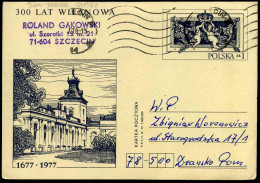 300 LAT WILANOWA
ROLAND GĄKOWSKI
ul. Szarotki 12 m. 21
71-604 SZCZECIN
POLSKA
1677-1977
KARTKA POCZTOWA
W P
Zbigniew Woronowicz
ul. Starogrodzka 17/1
78-500 Drawsko Pom.